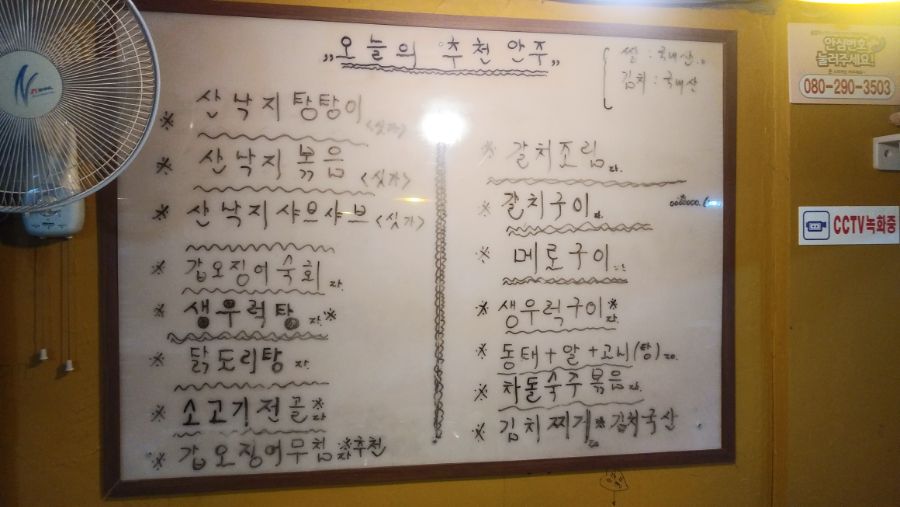 „오늘의 추천안주„
쌀 : 국내산
김치 : 국내산
※ 산낙지탕탕이 <싯가>
※ 산낙지 볶음 <싯가>
※ 산낙지샤브샤브 <싯가>
※ 갑오징어숙회
※ 생우럭탕 ※
※ 닭도리탕
※ 소고기전골 ※
※ 갑오징어무침 ※추천
※ 갈치조림
※ 갈치구이
※ 메로구이
※ 생우럭구이 ※
※ 동태+알+고니(탕)
※ 차돌숙주볶음
※ 김치찌개 ※ 김치국산
안심번호
눌러주세요!
080-290-3503
CCTV녹화중